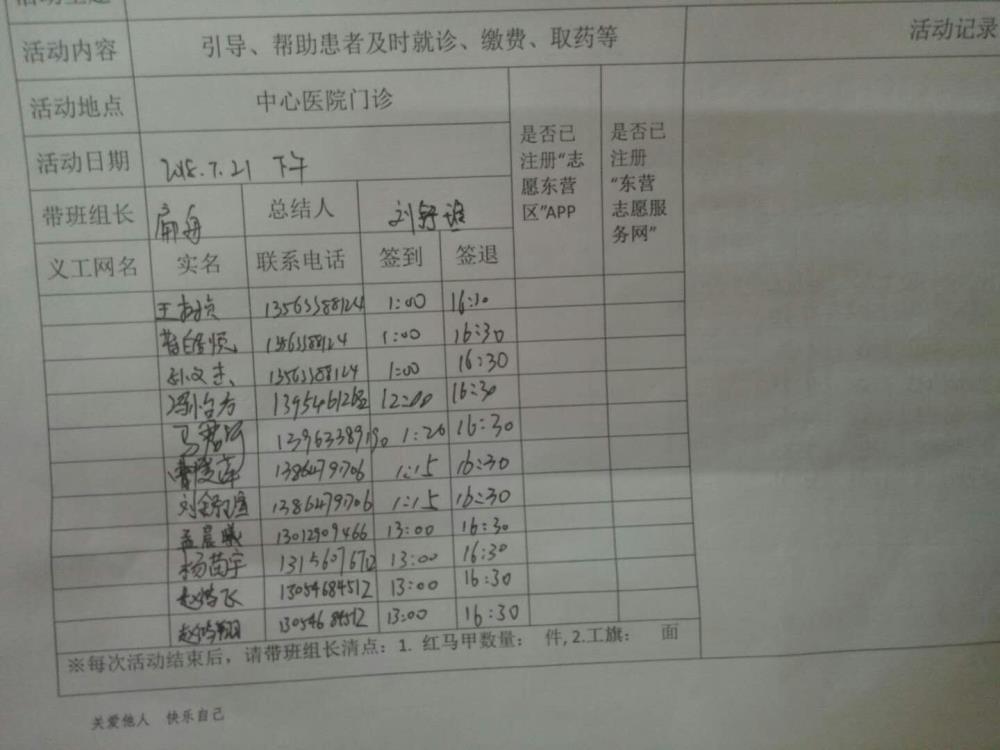 活动主题
活动内容 引导、帮助患者及时就诊、缴费、取药等 活动记录
活动地点 中心医院门诊 是否已注册“志愿东营区”APP 是否已注册“东营志愿服务网”
活动日期 2018.7.21 下午
带班组长 扁舟 总结人 刘舒谊
义工网名 实名 联系电话 签到 签退
13563388124 1:00 16:10
1:00 16:30
孙文杰 13563388124 1:00 16:30
冯怡方 12:00 16:30
马君珂 1:20 16:30
曹爱萍 13864791706 1:15 16:30
13864791706 1:15 16:30
孟晨曦 13012909466 13:00 16:30
杨苗宇 13156071672 13:00 16:30
赵鹤飞 13054684512 13:00 16:30
赵鹤翔 13054684512 13:00 16:30
※每次活动结束后，请带班组长清点：1. 红马甲数量： 件, 2.工旗： 面
关爱他人 快乐自己